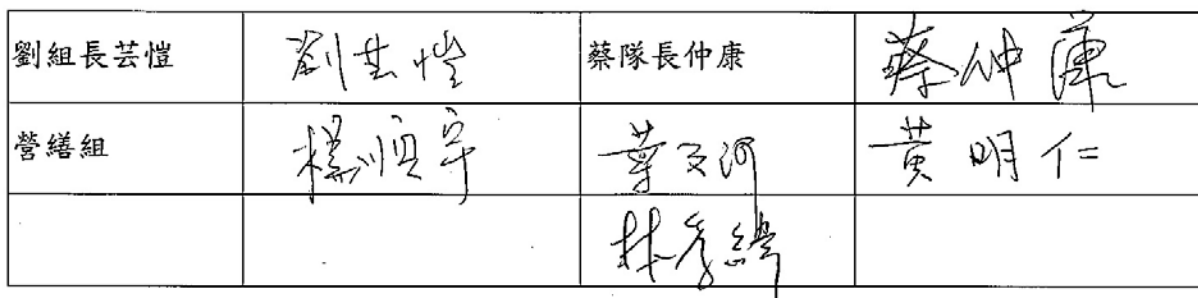 劉組長芸愷 劉芸愷 蔡隊長仲康 蔡仲康
營繕組 黃明仁
林彥緯